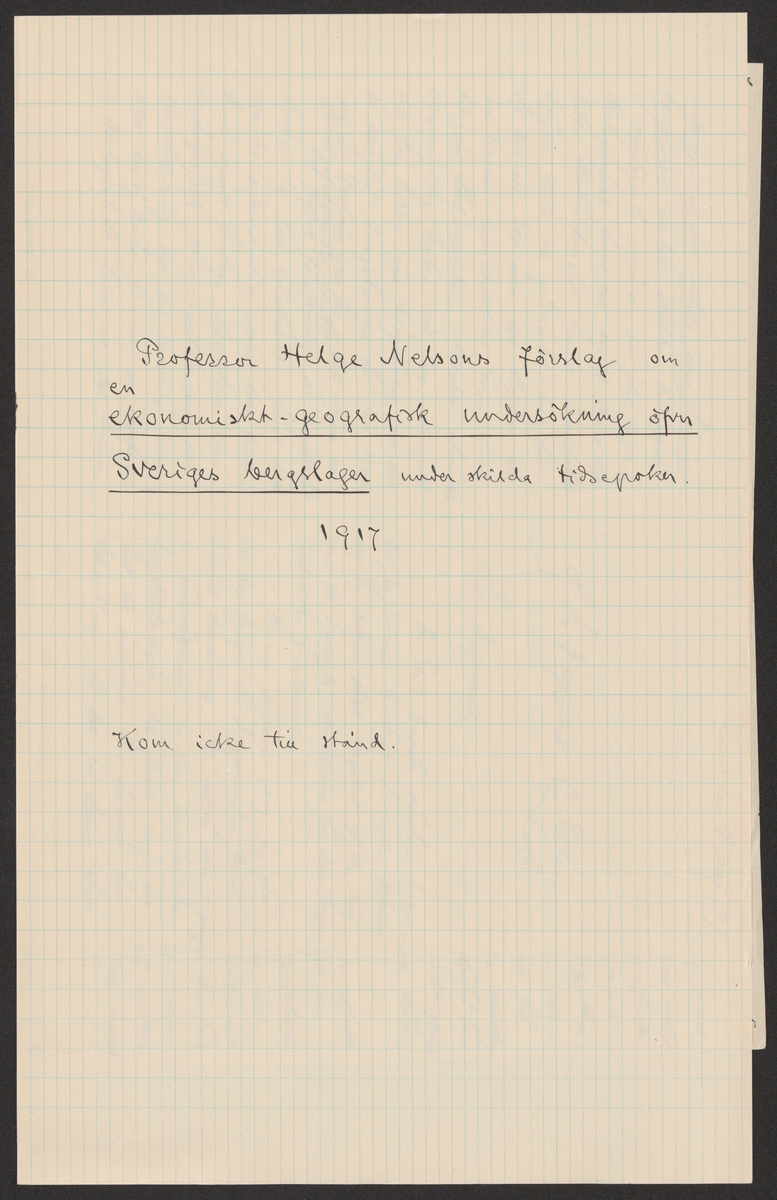 Professor Helge Nelsons förslag om
en
ekonomiskt-geografisk undersökning öfver
Sveriges bergslager under skilda tidsepoker.
1917
Kom icke till stånd.